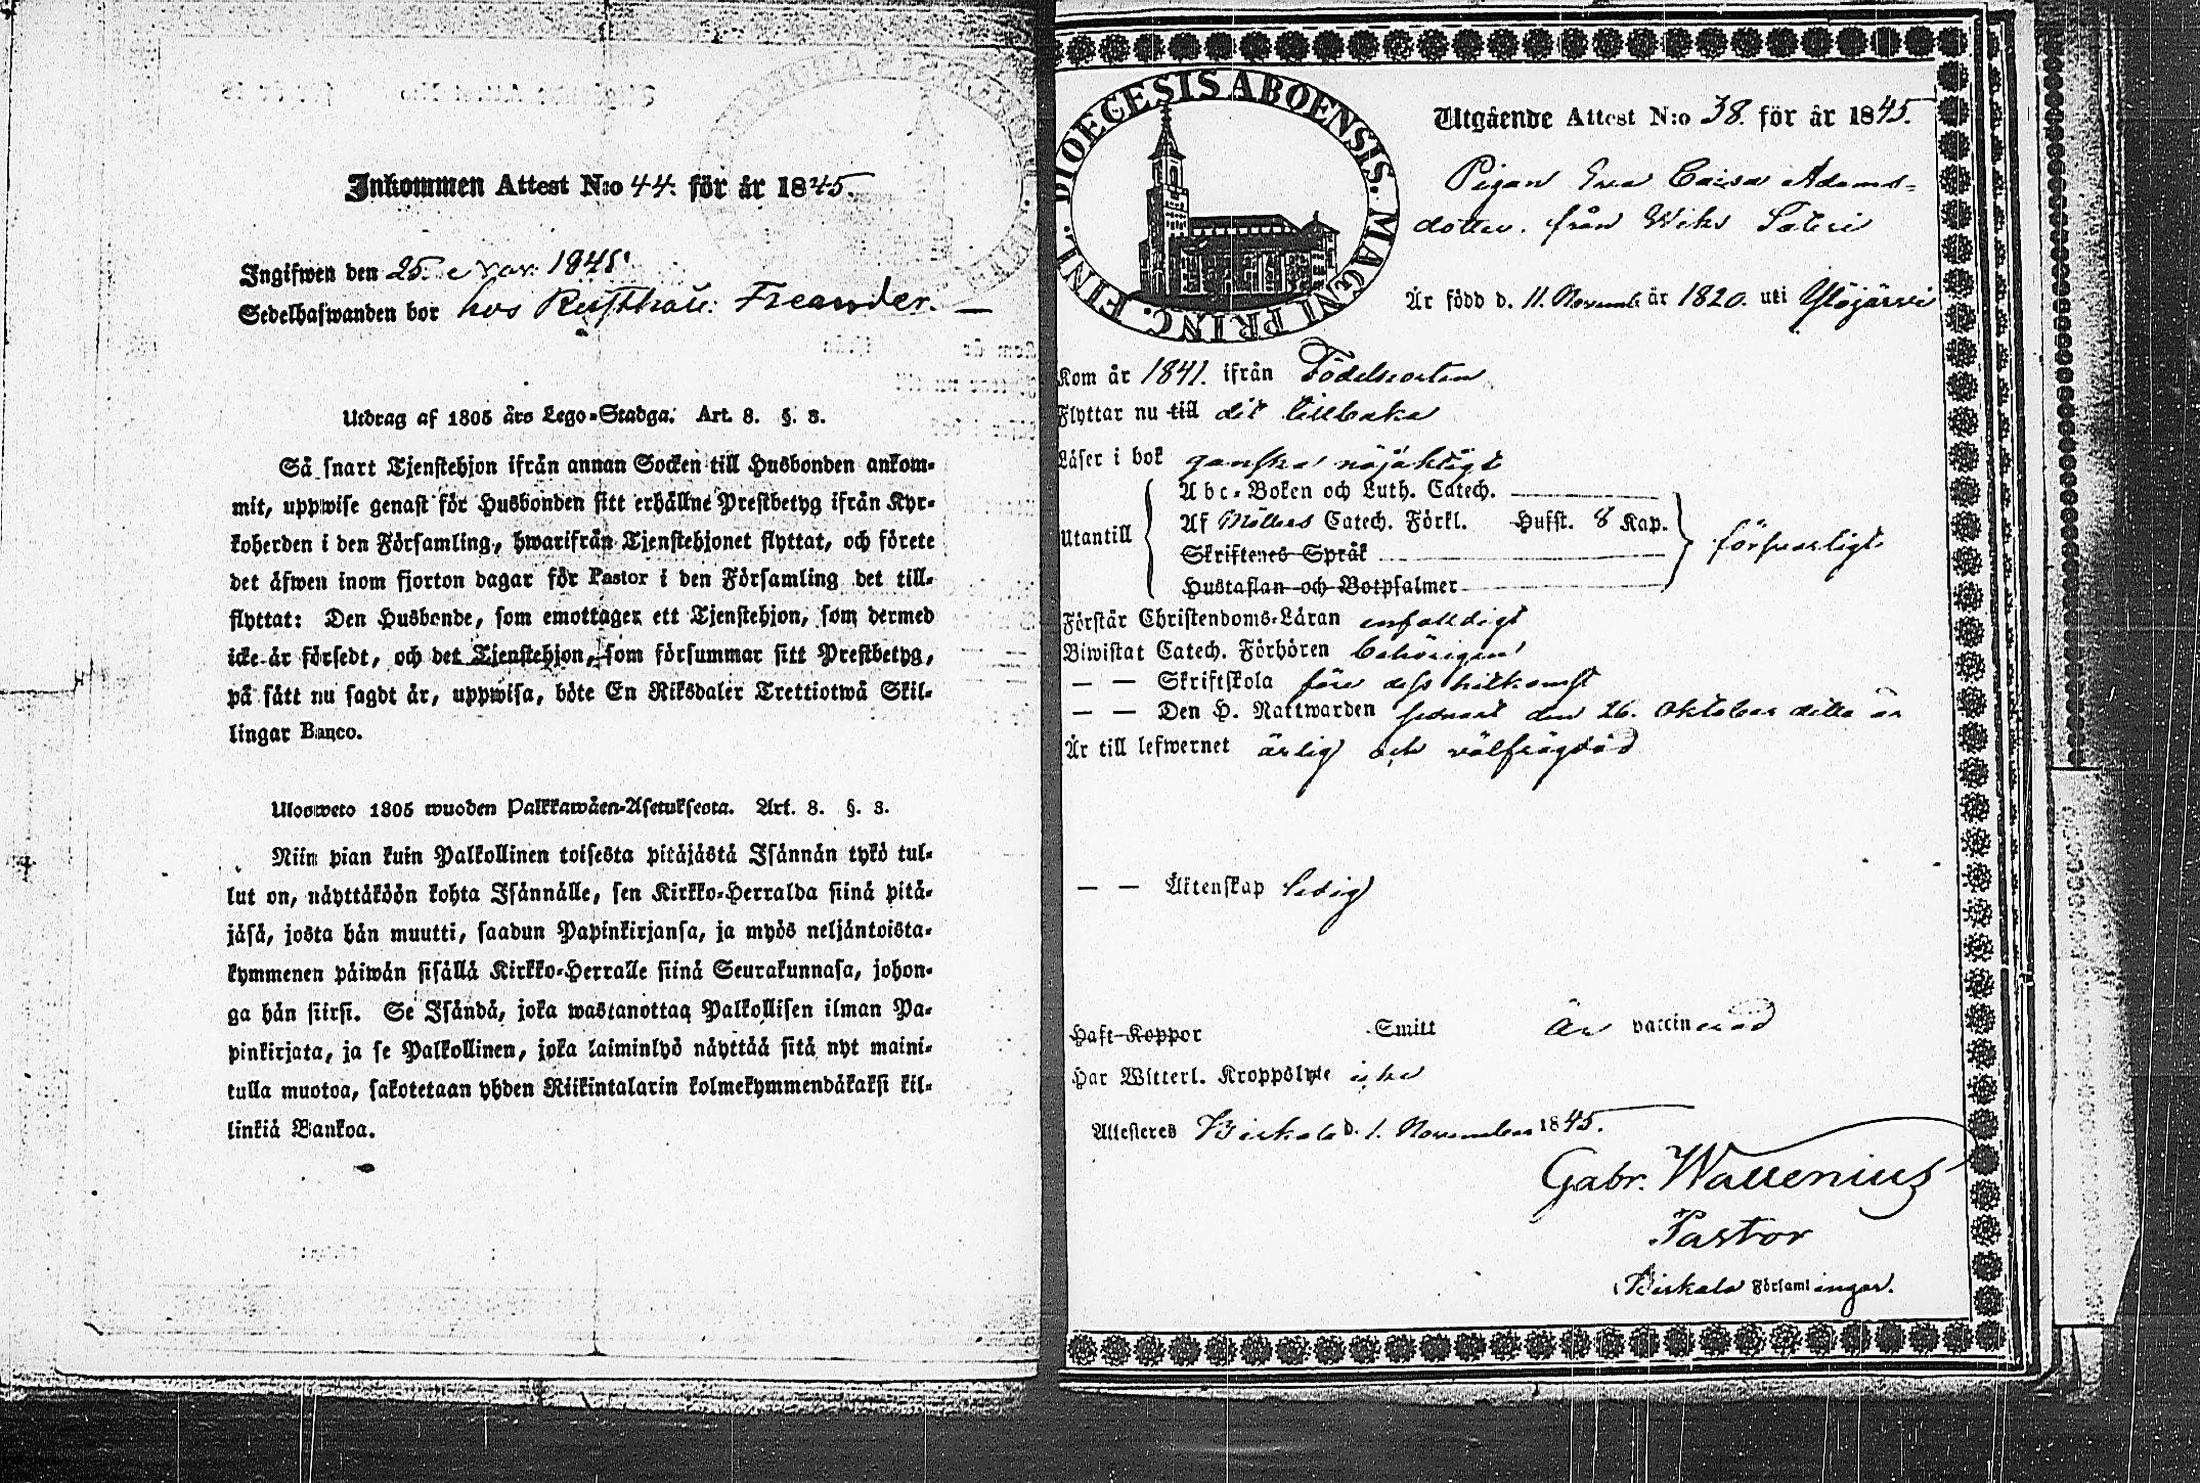 Inkommen Attest N:o 44. för år 1845.
Ingifwen den 25. Nov. 1845.
Sedelhafwanden bor hos Rusthåll: Freander.
Utdrag af 1805 års Lego-Stadga. Art. 8. §. 3.
Så snart Tjenstehjon ifrån annan Socken till Husbonden ankom-
mit, uppwise genast för Husbonden sitt erhållne Prestbetyg ifrån Kyr-
koherden i den Församling, hwarifrån Tjenstehjonet flyttat, och förete
det äfwen inom fjorton dagar för Pastor i den Församling det till-
flyttat: Den Husbonde, som emottager ett Tjenstehjon, som dermed
icke är försedt, och det Tjenstehjon, som försummar sitt Prestbetyg,
på sätt nu sagdt är, uppwisa, böte En Riksdaler Trettiotwå Skil-
lingar Banco.
Ulosweto 1805 wuoden Palkkawäen-Asetuksesta. Art. 8. §. 3.
Niin pian kuin Palkollinen toisesta pitäjästä Isännän tykö tul-
lut on, näyttäköön kohta Isännälle, sen Kirkko-Herralda siinä pitä-
jäsä, josta hän muutti, saadun Papinkirjansa, ja myös neljäntoista-
kymmenen päiwän sisällä Kirkko-Herralle siinä Seurakunnasa, johon-
ga hän siirsi. Se Isändä, joka wastanottaa Palkollisen ilman Pa-
pinkirjata, ja se Palkollinen, joka laiminlyö näyttää sitä nyt maini-
tulla muotoa, sakotetaan yhden Riikintalarin kolmekymmendäkaksi kil-
linkiä Bankoa.
DIOECESIS ABOENSIS. MAGNI PRINC. FINL.
Utgående Attest N:o 38. för år 1845.
Pigan Eva Caisa Adams-
dotter. från Wiks Säteri
Är född d. 11. Novemb. år 1820. uti Ylöjärvi
Kom år 1841. ifrån Födelseorten
Flyttar nu till dit tillbaka
Läser i bok ganska nöjaktigt
Abc-Boken och Luth. Catech.
Utantill Af Möllers Catech. Förkl. Hufst. 8 Kap. försvarligt
Skriftenes Språk
Hustaflan och Botpsalmer
Förstår Christendoms-Läran enfalldigt
Biwistat Catech. Förhören behörigen
— — Skriftskola före dess hitkomst
— — Den H. Nattwarden senast den 26. Oktober detta år
Är till lefwernet ärlig och välfrägdad
— — Äktenskap ledig
Haft Koppor Smitt Är vaccinerad
Har Witterl. Kroppslyte icke
Attesteres Birkala d. 1. November 1845.
Gabr. Wallenius
Pastor
Birkala Församlingar.